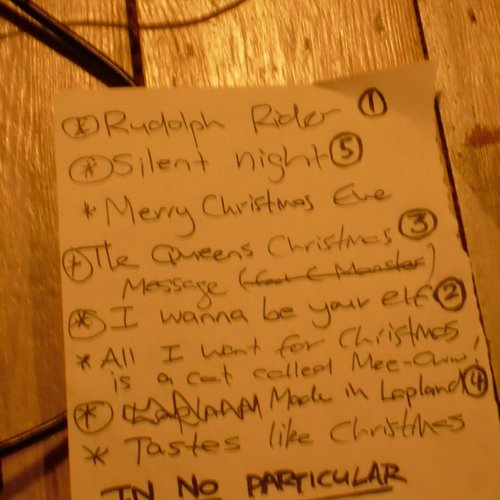 * Rudolph Rider 1
* Silent night 5
* Merry Christmas Eve
* The Queens Christmas 3
Message
* I wanna be your elf 2
* All I want for Christmas
is a cat called Mee-Oww!
* Made in Lapland 4
* Tastes like Christmas
IN NO PARTICULAR